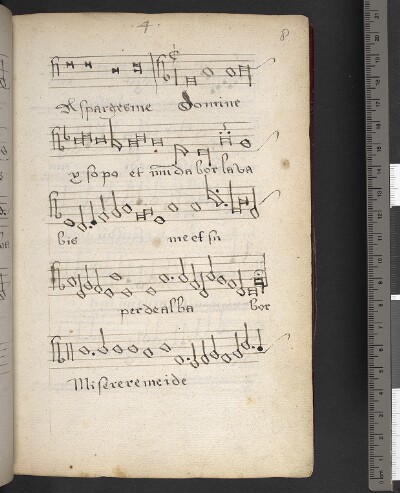 4. 8
Aspargesme Domine
ysopo et mūdabor lava
bis me et su
per de alba bor
Miserere mei de